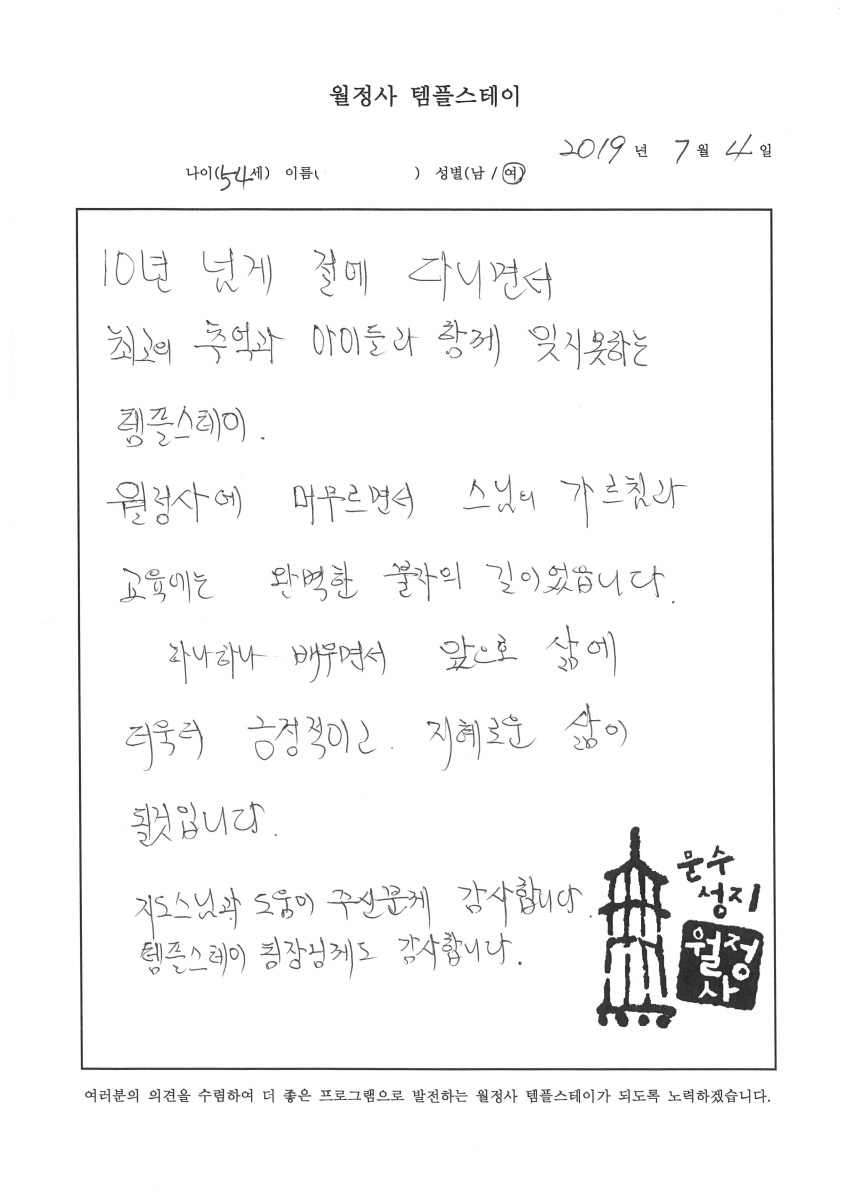 월정사 템플스테이
2019 년 7 월 4 일
나이(54세) 이름( ) 성별(남 / 여)
10년 넘게 절에 다니면서
최고의 추억과 아이들과 함께 잊지못하는
템플스테이.
월정사에 머무르면서 스님의 가르침과
교육에는 완벽한 불자의 길이었습니다.
하나하나 배우면서 앞으로 삶에
더욱더 긍정적이고. 지혜로운 삶이
될것입니다.
지도스님과 도움이 주신분께 감사합니다.
템플스테이 팀장님께도 감사합니다.
문수
성지
월정
사
여러분의 의견을 수렴하여 더 좋은 프로그램으로 발전하는 월정사 템플스테이가 되도록 노력하겠습니다.